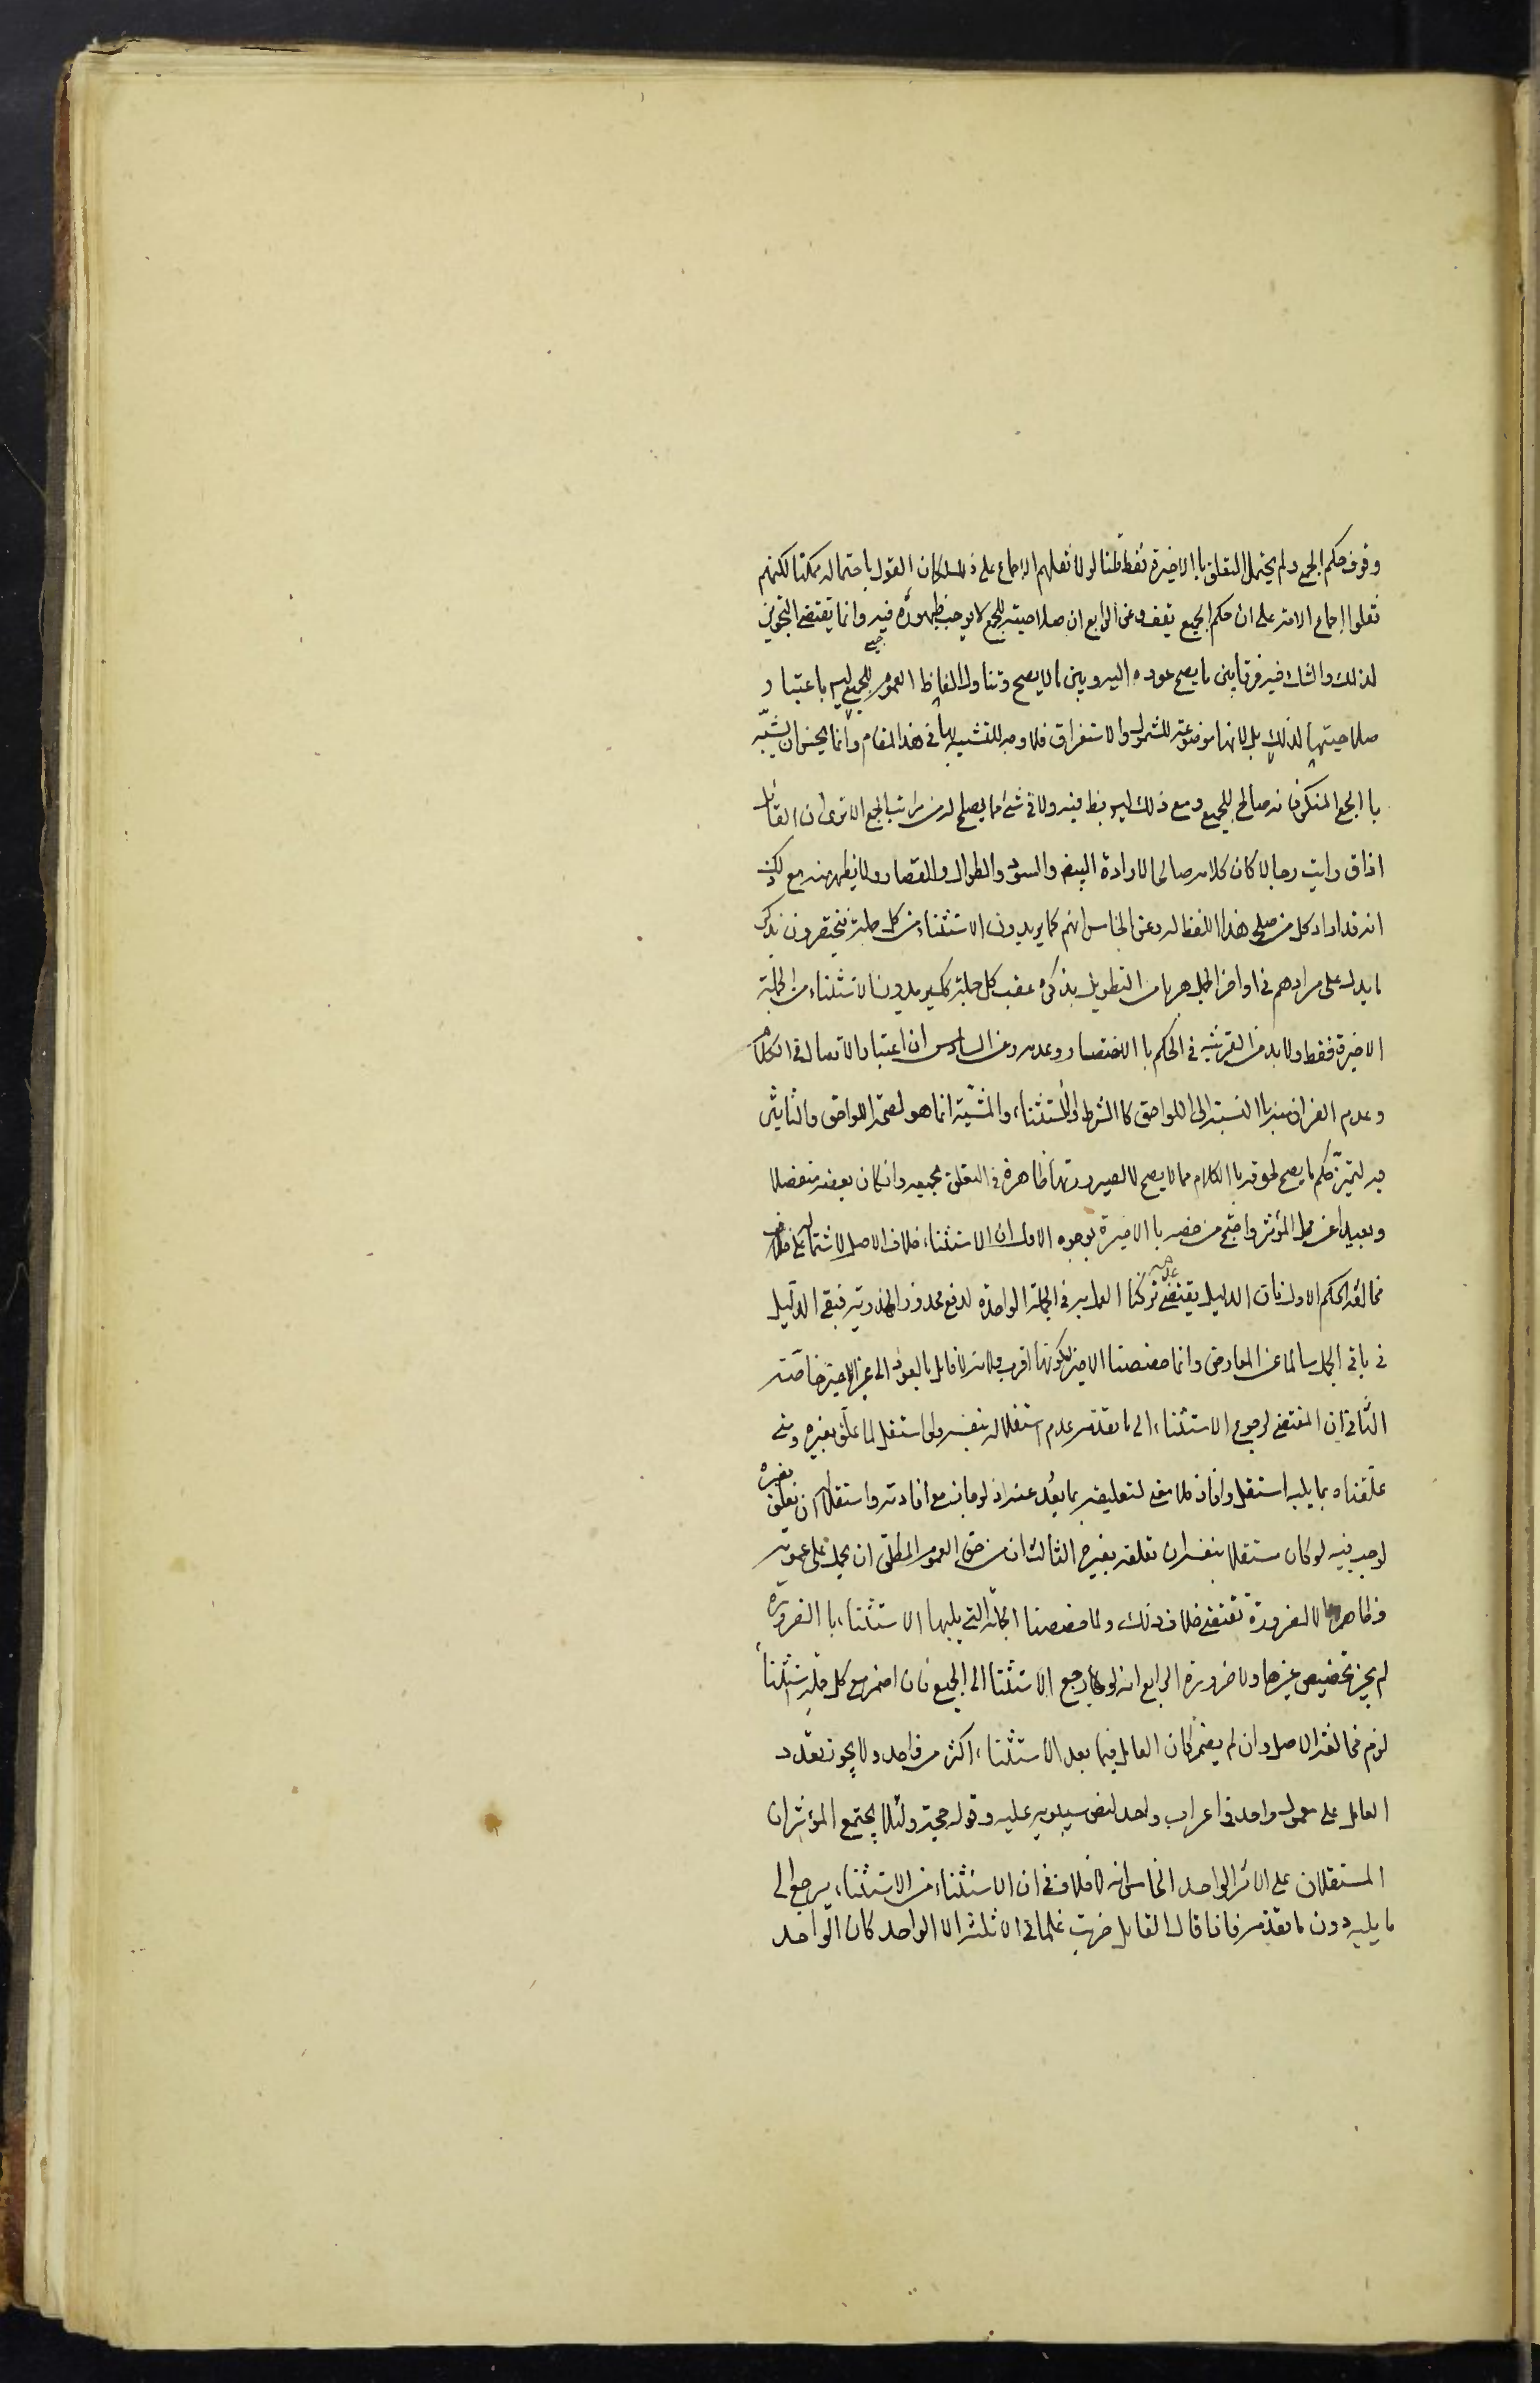 وقوف حكم الجميع ولم يحتمل التعلق باالاخيرة فقط قلنا لولا نقلهم الاجماع على ذلك لكان القول باحتماله ممكنا لكنهم
نقلوا إجماع الامة على ان حكم الجميع يقف وعن الرابع ان صلاحيته للجمع لا يوجب ظهوره فيه وانما يقتضي التجويز
لذلك والشك فيه فرقا بين ما يصح عوده اليه وبين ما لا يصح وتناول الفاظ العموم للجميع ليس باعتبار
صلاحيتها لذلك بل لانها موضوعة للشمول والاستغراق فلا وجه للتشبيه بها في هذا المقام وانما يحسن ان يشبه
باالجمع المنكر فانه صالح للجميع ومع ذلك ليس بظ فيه ولا في شئ مما يصلح له من مراتب الجمع الا ترى ان القائل
اذا ق رايت رجالا كان كلامه صالحا لارادة البيض والسود والطوال والقصار ولا يظهر منه مع ذلك
انه قد اراد كل من صلح هذا اللفظ له وعن الخامس انهم كما يريدون الاستثناء من كل جملة فيختصرون بذكر
ما يدل على مرادهم في اواخر الجمل هربا من التطويل بذكره عقب كل جملة كك يريدون الاستثناء من الجملة
الاخيرة فقط ولا بد من القرينة في الحكم باالاختصار وعدمه وعن السادس ان اعتبار الاتصال في الكلام
وعدم الفراغ منه باالنسبة الى اللواحق كاالشرط والاستثناء والمشية انما هو لصحة اللواحق والتاثير
فيه لتميز حكم ما يصح لحوقه باالكلام مما لا يصح لا لصيرورتها ظاهرة في التعلق بجميعه وان كان بعضه منفصلا
وبعيدا عن محل المؤثر واحتج من خصه باالاخيرة بوجوه الاول ان الاستثناء خلاف الاصل لاشتماله على
مخالفة الحكم الاول فان الدليل يقتضي عدمه تركنا العمل به في الجملة الواحدة لدفع محذور الهذرية فبقي الدليل
في باقي الجمل سالما عن المعارض وانما خصصنا الاخيرة لكونها اقرب ولانه لا قائل بالعود الى غير الاخيرة خاصة
الثاني ان المقتضي لرجوع الاستثناء الى ما تقدمه عدم استقلاله بنفسه ولو استقل لما علق بغيره ومتى
علقناه بما يليه استقل وافاد فلا معنى لتعليقه بما بعد عنه اذ لو جاز مع افادته واستقلاله ان يعلق بغيره
لوجب فيه لو كان مستقلا بنفسه ان نعلقه بغيره الثالث ان من حق العموم المطلق ان يحمل على عمومه
وظاهره الا لضرورة تقتضي خلاف ذلك ولما خصصنا الجملة التي يليها الاستثناء باالضرورة
لم يجز تخصيص غيرها ولا ضرورة الرابع انه لو رجع الاستثنا الى الجميع فان اضمر مع كل جملة استثناء
لزم مخالفة الاصل وان لم يضمر كان العامل فيما بعد الاستثناء اكثر من واحد ولا يجوز تعدد
العامل على معمول واحد في اعراب واحد لنص سيبويه عليه وقوله حجة ولئلا يجتمع المؤثران
المستقلان على الاثر الواحد الخامس انه لا خلاف في ان الاستثناء من الاستثناء يرجع الى
ما يليه دون ما تقدمه فاذا قال القايل ضربت غلماني الا ثلثة الا الواحد كان الواحد